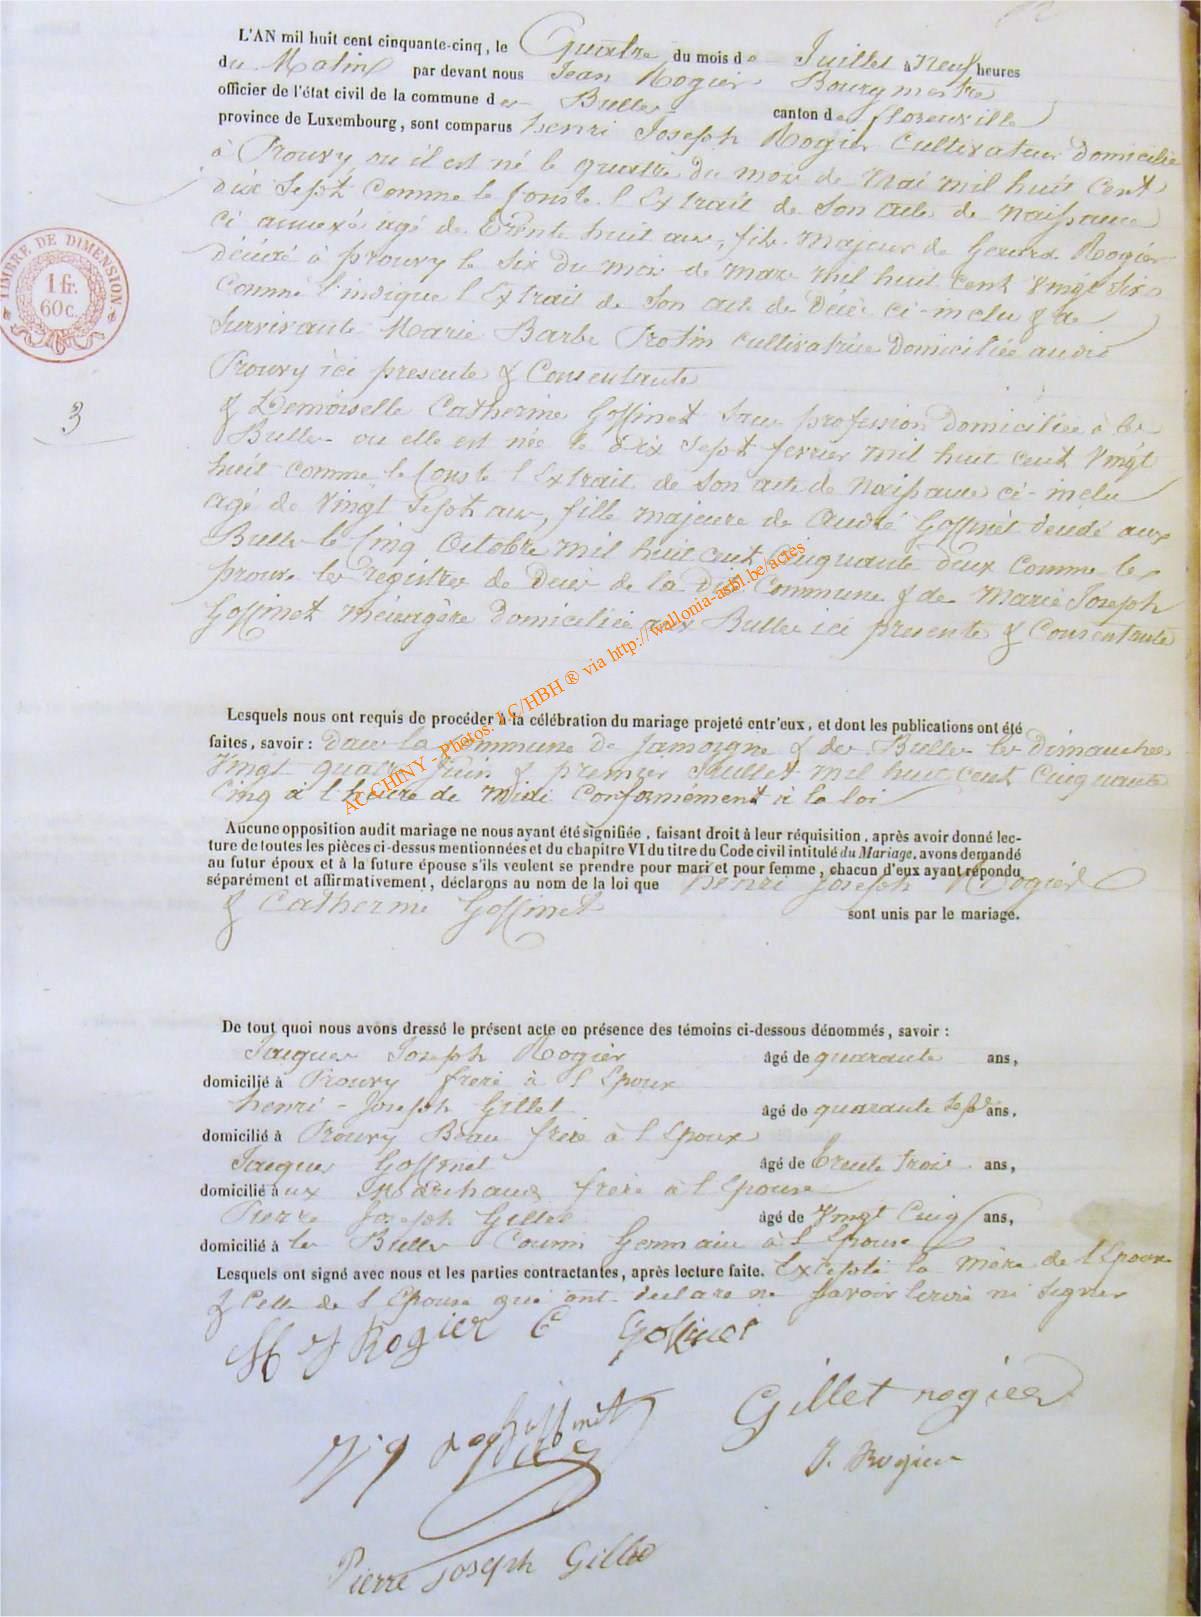 L'AN mil huit cent cinquante-cinq, le Quatre du mois de Juillet à Neuf heures
du Matin par devant nous Jean Rogier Bourgmestre
officier de l'état civil de la commune des Bulles canton de florenville
province de Luxembourg, sont comparus henri Joseph Rogier Cultivateur domicilié
à Prouvy ou il est né le quatre du mois de Mai mil huit cent
dix Sept Comme le Conste l Extrait de Son acte de Naissance
ci annexé agé de Trente huit ans, fils Majeur de Gerard Rogier
décédé à prouvy le Six du mois de mars mil huit cent vingt Six
Comme l'indique l Extrait de Son acte de Décès ci-inclu & de
Survivante Marie Barbe Protin cultivatrice Domiciliée audit
Prouvy ici presente & Consentante
& Demoiselle Catherine Goffinet Sans profession Domiciliée à les
Bulles ou elle est née le Dix Sept fevrier mil huit cent Vingt
huit comme le Conste l Extrait de Son acte de Naissance ci-inclu
agé de Vingt Sept ans, fille majeure de André Goffinet décédé aux
Bulles le Cinq Octobre mil huit cent Cinquante deux comme le
prouve les registres de Décès de la dite Commune & de Marie Joseph
Goffinet ménagère Domiciliée aux Bulles ici presente & Consentante
TIMBRE DE DIMENSION
1 fr.
60 c.
3
Lesquels nous ont requis de procéder à la célébration du mariage projeté entr'eux, et dont les publications ont été
faites, savoir : dans la Commune de Jamoigne & des Bulles les Dimanches
Vingt quatre Juin & premier Juillet mil huit cent Cinquante
Cinq à l'heure de Midi Conformément à la loi
Aucune opposition audit mariage ne nous ayant été signifiée, faisant droit à leur réquisition, après avoir donné lec-
ture de toutes les pièces ci-dessus mentionnées et du chapitre VI du titre du Code civil intitulé du Mariage, avons demandé
au futur époux et à la future épouse s'ils veulent se prendre pour mari et pour femme, chacun d'eux ayant répondu
séparément et affirmativement, déclarons au nom de la loi que henri Joseph Rogier
& Catherine Goffinet sont unis par le mariage.
De tout quoi nous avons dressé le présent acte en présence des témoins ci-dessous dénommés, savoir :
Jaques Joseph Rogier âgé de quarante ans,
domicilié à Prouvy frere à l Epoux
henri - Joseph Gillet âgé de quarante Sept ans,
domicilié à Prouvy Beau frere à l Epoux
Jaques Goffinet âgé de trente trois ans,
domicilié à ux frère à l Epouse
Pierre Joseph Gillet âgé de Vingt Cinq ans,
domicilié à les Bulles Cousin Germain à l Epouse
Lesquels ont signé avec nous et les parties contractantes, après lecture faite. Excepté la Mère de l Epoux
& Celle de l Epouse qui ont declare ne Savoir Ecrire ni Signer
H J Rogier C Goffinet
Gillet rogier
J. Rogier
Pierre Joseph Gillet
AC CHINY - Photos: LC/HBH ® via http://wallonia-asbl.be/actes